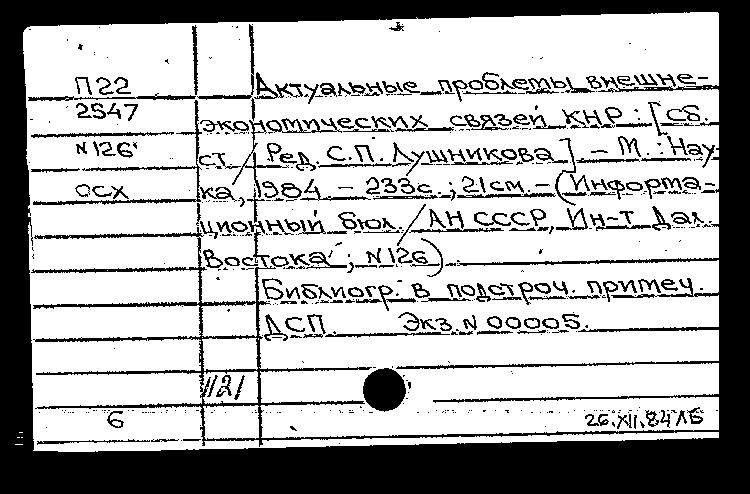 П22 Актуальные проблемы внешне-
2547 экономических связей КНР : [Сб.
N126 ст / Ред. С.П. Лушникова] – М. : Нау-
ОСХ ка, 1984 – 233с. ; 21см. – (Информа-
ционный бюл. / АН СССР, Ин-т Дал.
Востока ; N126)
Библиогр. в подстроч. примеч.
ДСП. Экз. N 00005.
1121
6 26.XII.84 ЛБ